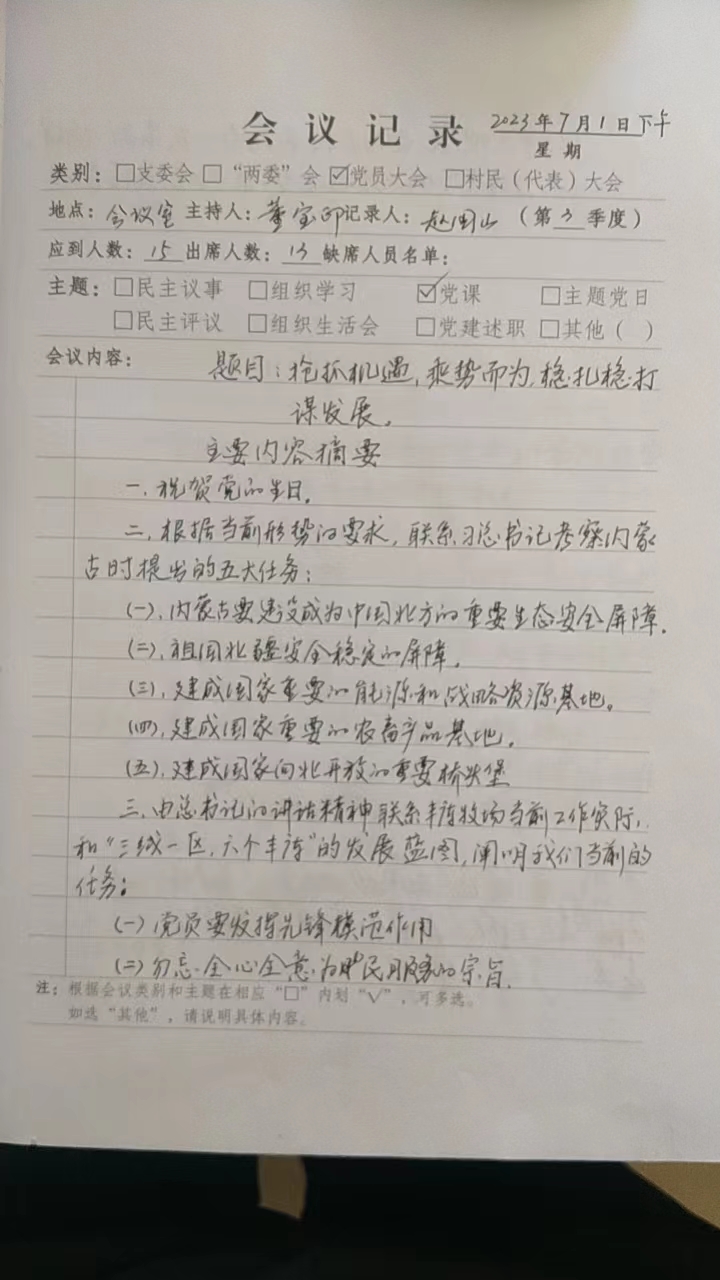 会议记录 2023年7月1日下午
星期
类别：□支委会 □“两委”会 ☑党员大会 □村民（代表）大会
地点：会议室 主持人：董宝 记录人：赵国山 （第3季度）
应到人数：15 出席人数：13 缺席人员名单：
主题：□民主议事 □组织学习 ☑党课 □主题党日
□民主评议 □组织生活会 □党建述职 □其他（ ）
会议内容： 题目：抢抓机遇，乘势而为，稳扎稳打
谋发展。
主要内容摘要
一、祝贺党的生日。
二、根据当前形势的要求，联系习总书记考察内蒙
古时提出的五大任务：
(一)、内蒙古要建设成为中国北方的重要生态安全屏障。
(二)、祖国北疆安全稳定的屏障。
(三)、建成国家重要的能源和战略资源基地。
(四)、建成国家重要的农畜产品基地。
(五)、建成国家向北开放的重要桥头堡
三、由总书记的讲话精神联系牧场当前工作实际，
和“三线一区，六个”的发展蓝图，阐明我们当前的
任务：
(一)党员要发挥先锋模范作用
(二)勿忘全心全意为人民服务的宗旨。
注：根据会议类别和主题在相应“□”内划“√”，可多选。
如选“其他”，请说明具体内容。